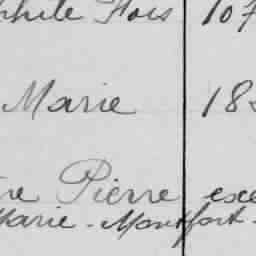 phile Fois 107
Marie 18
re Pierre exe
Marie - Montfort -